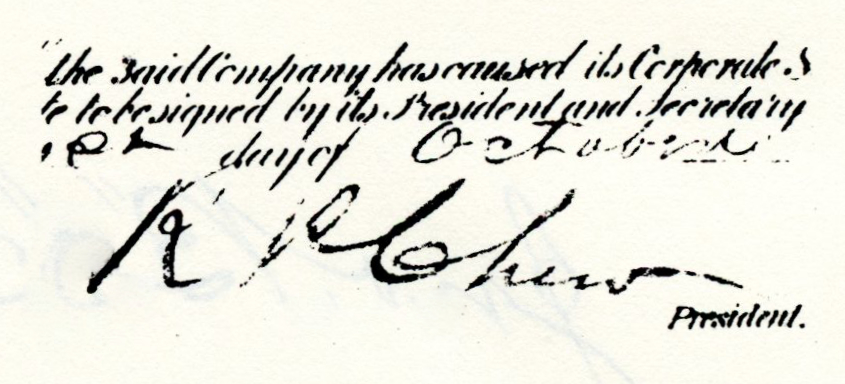 the said Company has caused its Corporate S
te to be signed by its President and Secretary
day of October
R P Chew
President.